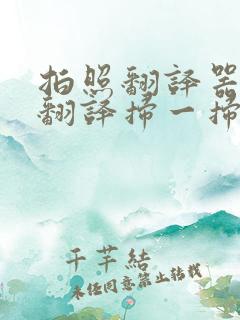 拍照翻译器
翻译扫一扫
千芊結
未经同意禁止转载